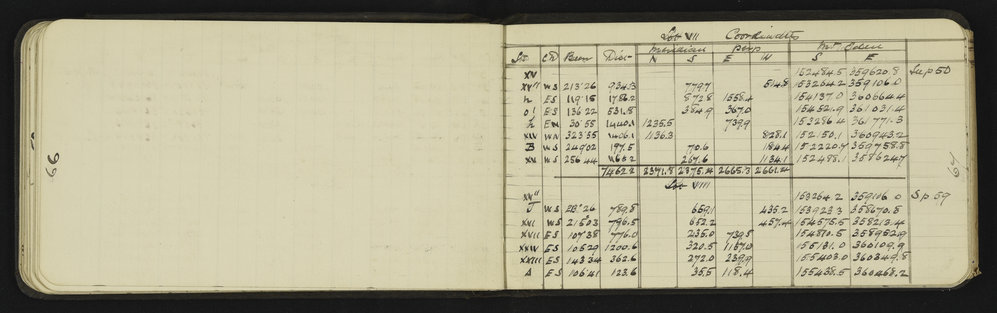 66
Lot VII Coordinates
Meridian Perp Mt Eden
Stn QD Bear Dist N S E W S E
XV 152484.5 359620.8 See p 50
XVII WS 213°26 934.3 779.7 514.8 153264.2 359106.0
h ES 119°15 1786.2 872.8 1558.4 154137.0 360664.4
o' ES 136 22 531.8 384.9 367.0 154521.9 361031.4
EN 30°55 1440.1 1235.5 739.9 153286.4 361771.3
XIV WN 323°55 1406.1 1136.3 828.1 152150.1 360943.2
B WS 24902 197.5 70.6 184.4 152220.7 360758.8
XV WS 256 44 1165.2 267.6 1134.1 152488.1 359624.7
7462.2 2371.8 2375.4 2665.3 2661.4
Lot VIII
XVII 153264.2 359106.0 S p 59
J WS 789.8 659.1 435.2 153923.3 358670.8
XVI WS 21503 796.5 652.2 457.4 154575.5 358213.4
XVII ES 107°38 776.0 235.0 739.5 154810.5 358952.9
XXIV ES 105°29 1200.6 320.5 1157.0 155131.0 360109.9
XXIII ES 143 34 362.6 272.0 239.9 155403.0 360349.8
A ES 106°41 123.6 35.5 118.4 155438.5 360468.2
67